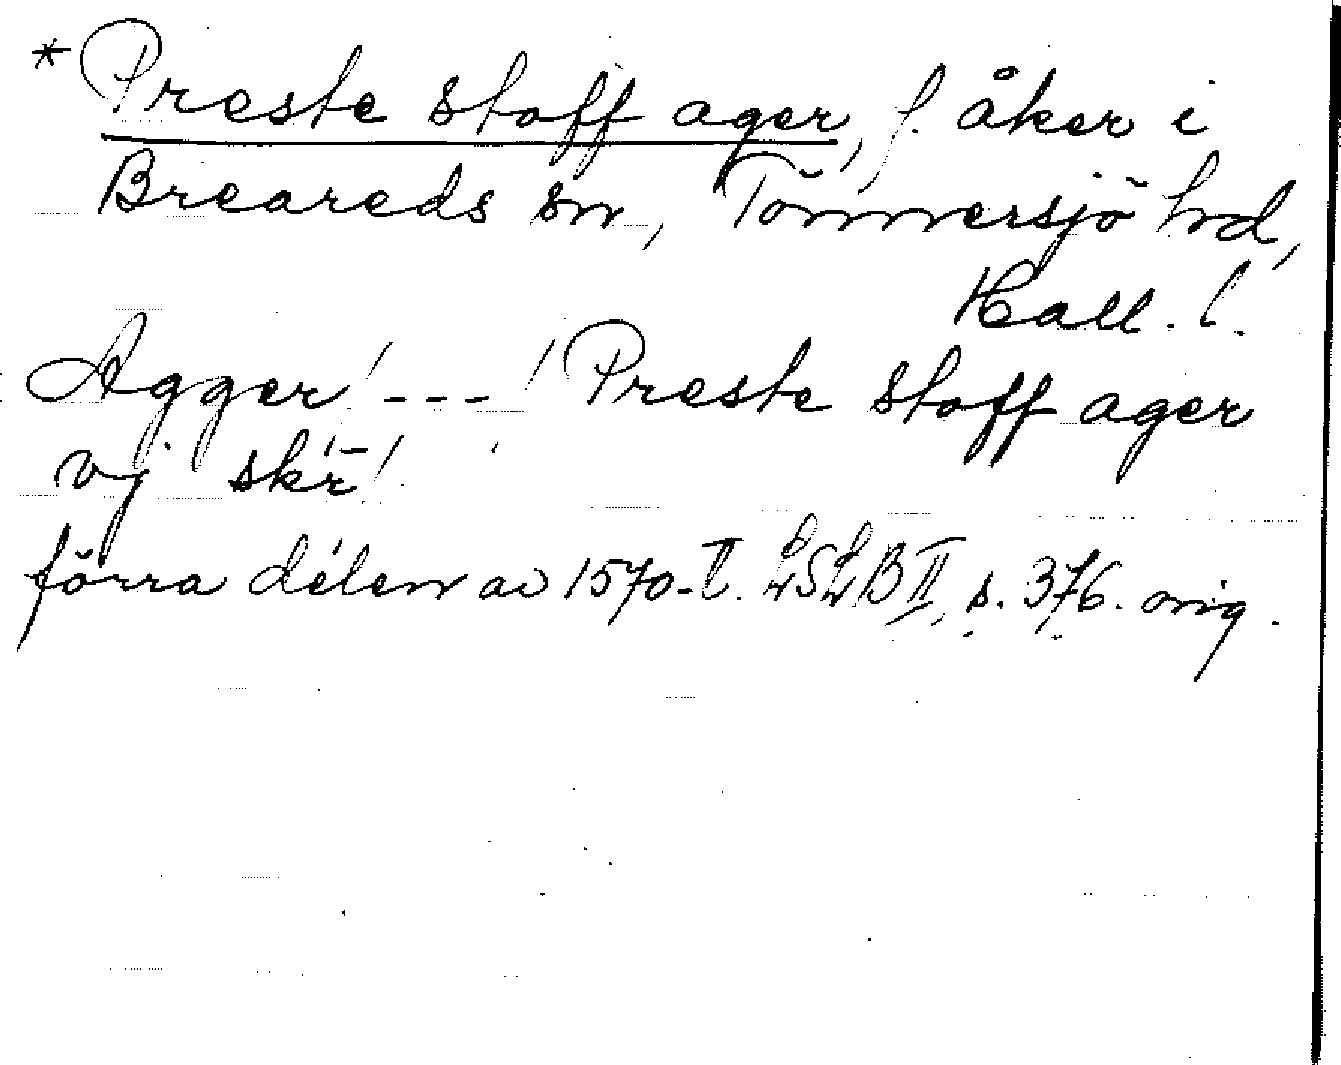 * Preste stoff ager, f. åker i
Breareds sn, Tönnersjö hd,
Hall. l.
Agger / --- / Preste stoff ager
vj skr̄ /
förra delen av 1570-t. LSLB II, s. 376. orig.